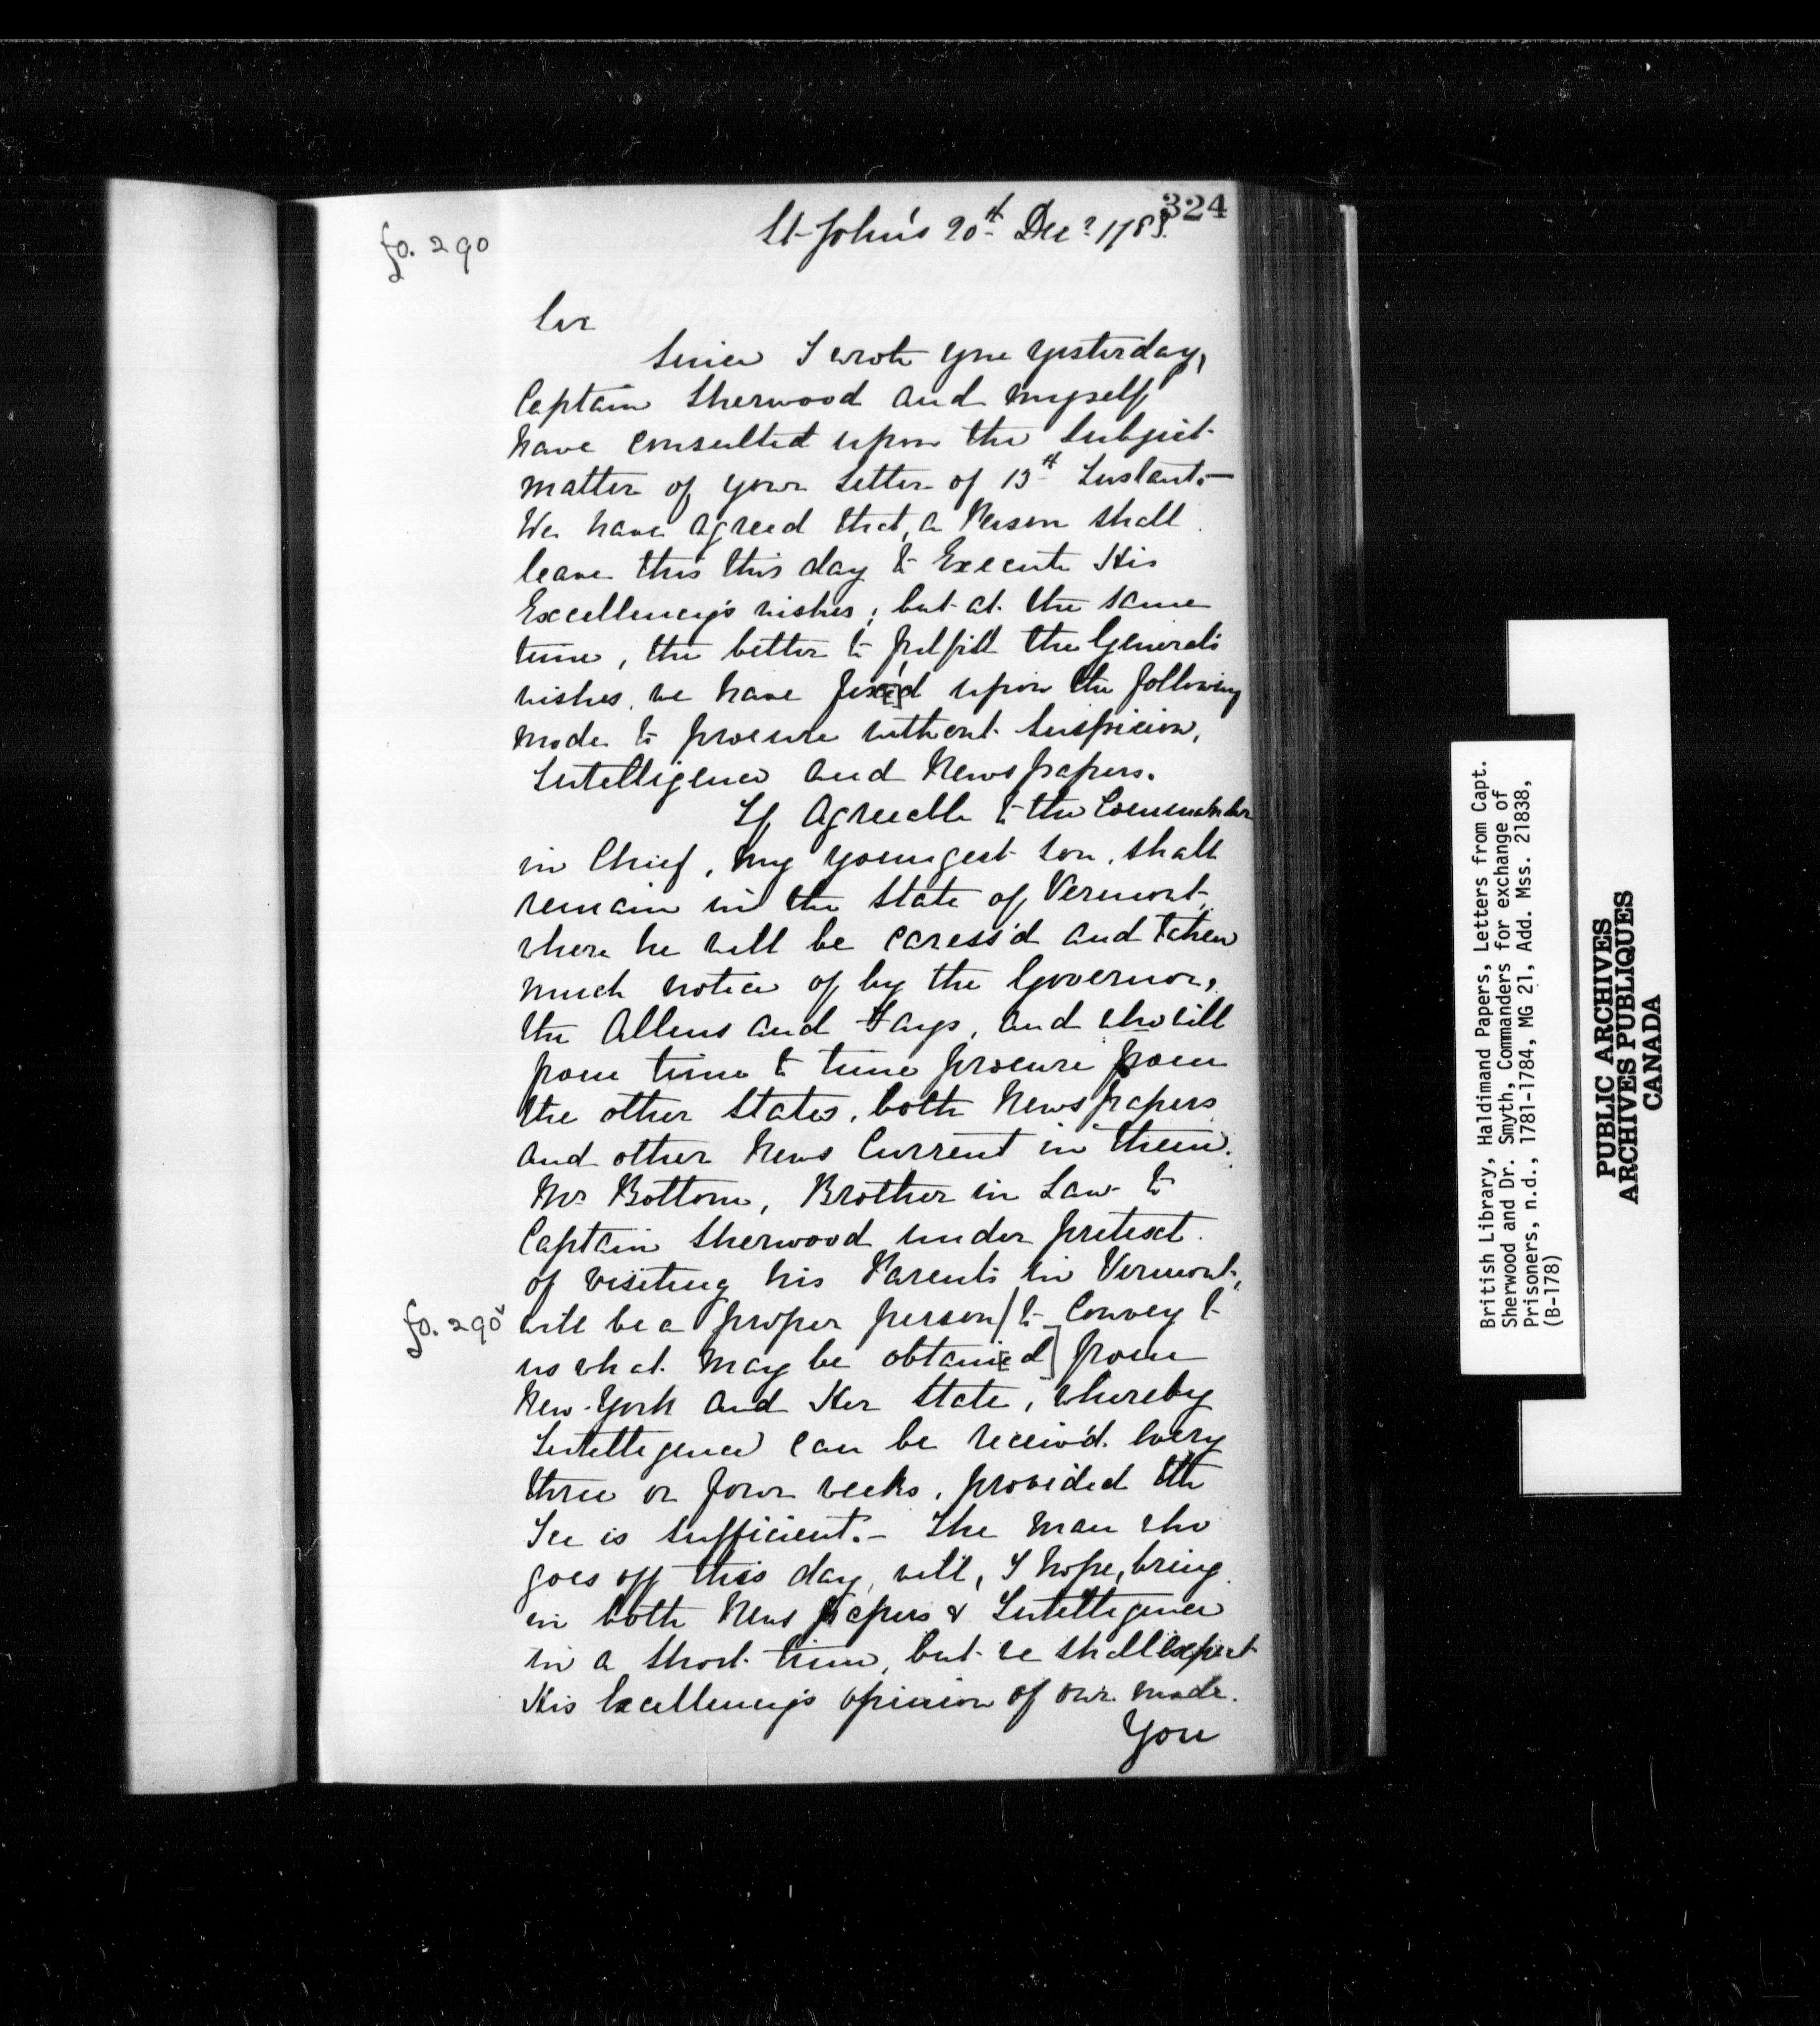 324
fo. 290
St. John's 20th Decr 1783.
Sir
Since I wrote you yesterday,
Captain Sherwood and myself
have consulted upon the Subject
matter of your Letter of 13th Instant.—
We have agreed that, a Person shall
leave this this day to Execute His
Excellency's wishes; but at the same
time, the better to fulfill the Generals
wishes, we have fix[e]d upon the following
mode to procure without Suspicion,
Intelligence and Newspapers.
If Agreeable to the Commander
in Chief, my youngest Son, shall
remain in the State of Vermont,
where he will be caress'd and taken
much notice of by the Governor,
the Allens and Fays, and who will
from time to time procure from
the other States, both Newspapers
and other News Current in them.
Mr Bottom, Brother in Law to
Captain Sherwood under pretext
of visiting his Parents in Vermont,
fo. 290v
will be a proper person/to Convey to
us what may be obtain[e]d] from
New-York and Her State, whereby
Intelligence can be receiv'd Every
three or four weeks, provided the
Ice is sufficient.— The man who
goes off this day, will, I hope, bring
in both News papers & Intelligence
in a Short time, but we shall expect
His Excellency's opinion of our mode.
You
British Library, Haldimand Papers, Letters from Capt.
Sherwood and Dr. Smyth, Commanders for exchange of
Prisoners, n.d., 1781-1784, MG 21, Add. Mss. 21838,
(B-178)
PUBLIC ARCHIVES
ARCHIVES PUBLIQUES
CANADA